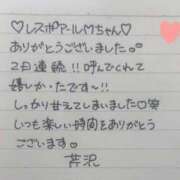 ♡レスポアールMちゃん♡
ありがとうございました。
2日連続!!呼んでくれて
嬉しかったです〜!!
しっかり甘えてしまいました♡笑
いつも楽しい時間をありがとう
ございます。
芹沢